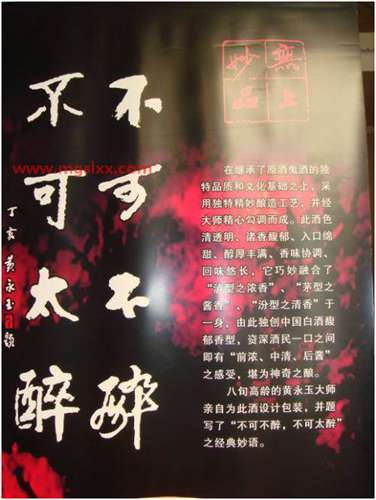 無上
妙品
不可不醉
不可太醉
丁亥黄永玉题
www.mgslxx.com
在继承了原酒鬼酒的独
特品质和文化基础之上，采
用独特精妙酿造工艺，并经
大师精心勾调而成。此酒色
清透明、诸香馥郁、入口绵
甜、醇厚丰满、香味协调、
回味悠长，它巧妙融合了
“泸型之浓香”、“茅型之
酱香”、“汾型之清香”于
一身，由此独创中国白酒馥
郁香型，资深酒民一口之间
即有“前浓、中清、后酱”
之感受，堪为神奇之酿。
八旬高龄的黄永玉大师
亲自为此酒设计包装，并题
写了“不可不醉，不可太醉”
之经典妙语。